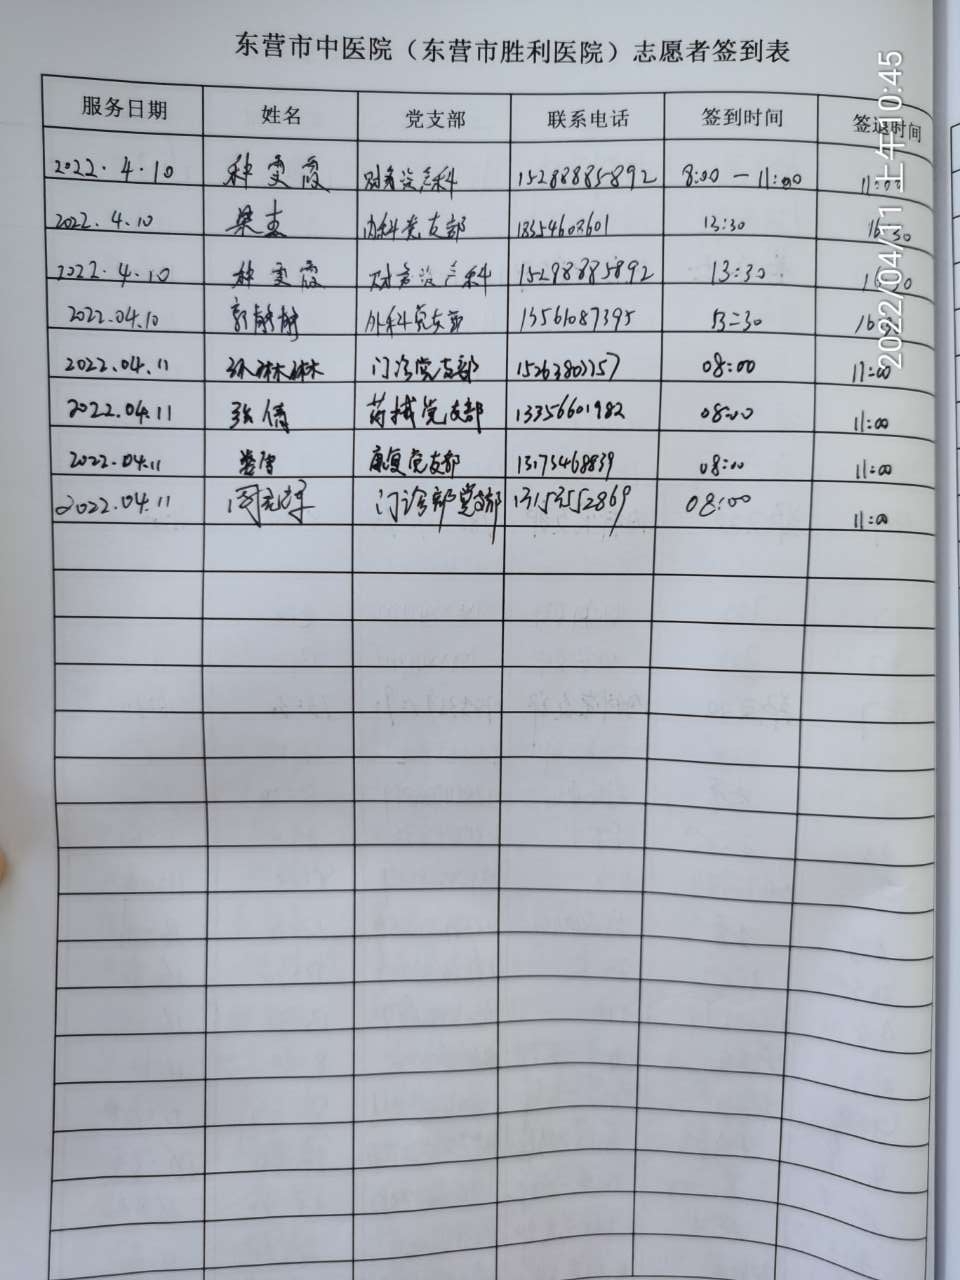 东营市中医院（东营市胜利医院）志愿者签到表
服务日期 姓名 党支部 联系电话 签到时间 签退时间
2022.4.10 种雯霞 财务资产科 15288885892 8:00 — 11:00 11:00
2022.4.10 梁杰 内科党支部 18354602601 13:30 16:30
2022.4.10 种雯霞 财务资产科 15288885892 13:30
2022.04.10 郭静静 外科党支部 13561087395 13:30
2022.04.11 孙琳琳 门诊党支部 08:00 11:00
2022.04.11 张倩 药械党支部 13356601982 08:00 11:00
2022.04.11 康复党支部 13175468839 08:00 11:00
2022.04.11 门诊部党支部 13153552869 08:00 11:00
2022/04/11 上午10:45